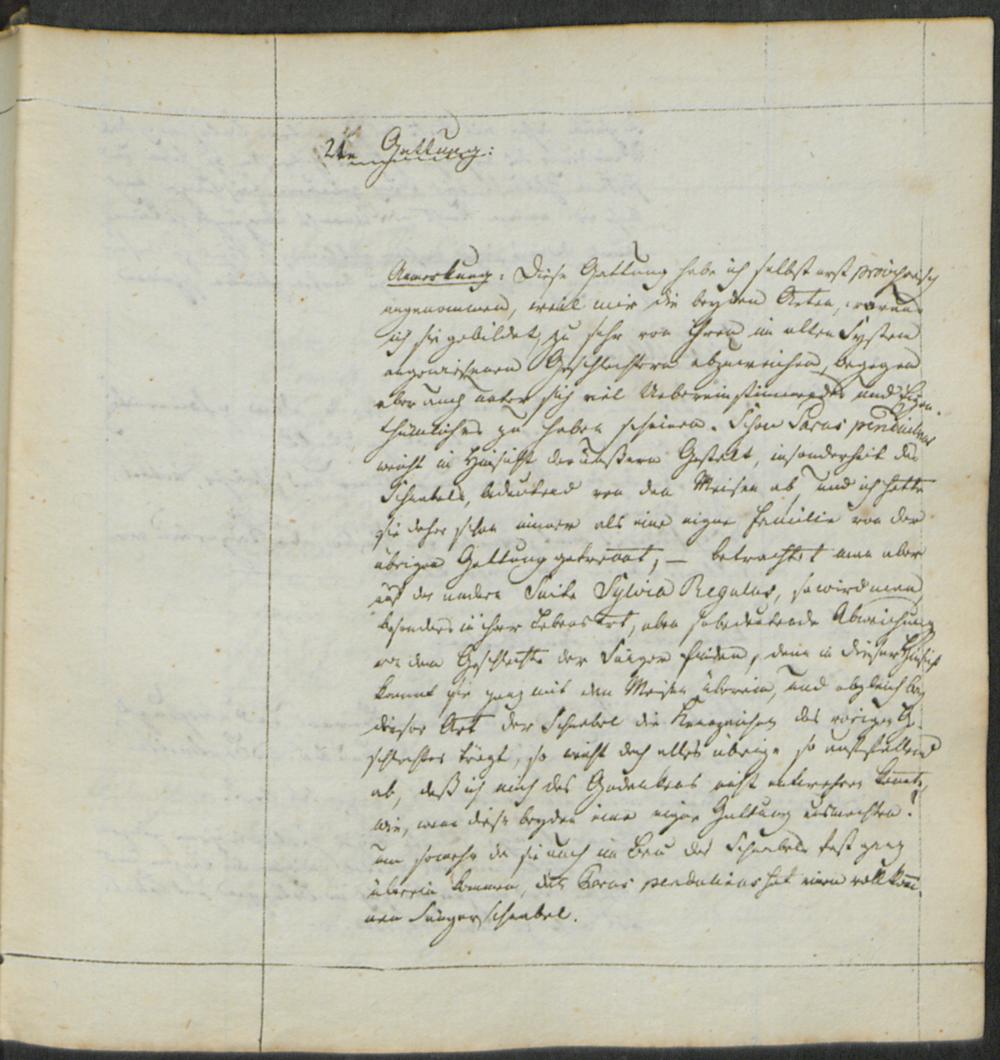 2te Gattung:
Anmerkung: Diese Gattung habe ich selbst erst
angenommen, weil mir die beyden Arten, woraus
ich sie gebildet, zu sehr von ihren im alten System
angewiesenen Geschlechtern abzuweichen, dagegen
aber auch unter sich viel Uebereinstimmendes und Eigen-
thümliches zu haben scheinen. Schon Parus pendulinus
weicht in Hinsicht der äußern Gestalt, insonderheit des
Schnabels, bedeutend von den Meisen ab, und ich hatte
sie daher schon immer als eine eigne Familie von der
übrigen Gattung getrennt; — betrachtet man aber
auf der andern Seite Sylvia Regulus, so wird man,
besonders in ihrer Lebensart, eben so bedeutende Abweichung
von dem Geschlechte der Sänger finden, denn in dieser Hinsicht
kommt sie ganz mit den Meisen überein, und obgleich bey
dieser Art der Schnabel die Kennzeichen des vorigen Ge-
schlechtes trägt, so weicht doch alles übrige so auffallend
ab, daß ich mich des Gedankens nicht erwehren konnte,
wie, wenn diese beyden eine eigne Gattung ausmachten?
um so mehr da sie auch im Bau des Schnabels fast ganz
überein kommen, denn Parus pendulinus hat einen vollkom̄-
nen Sängerschnabel.